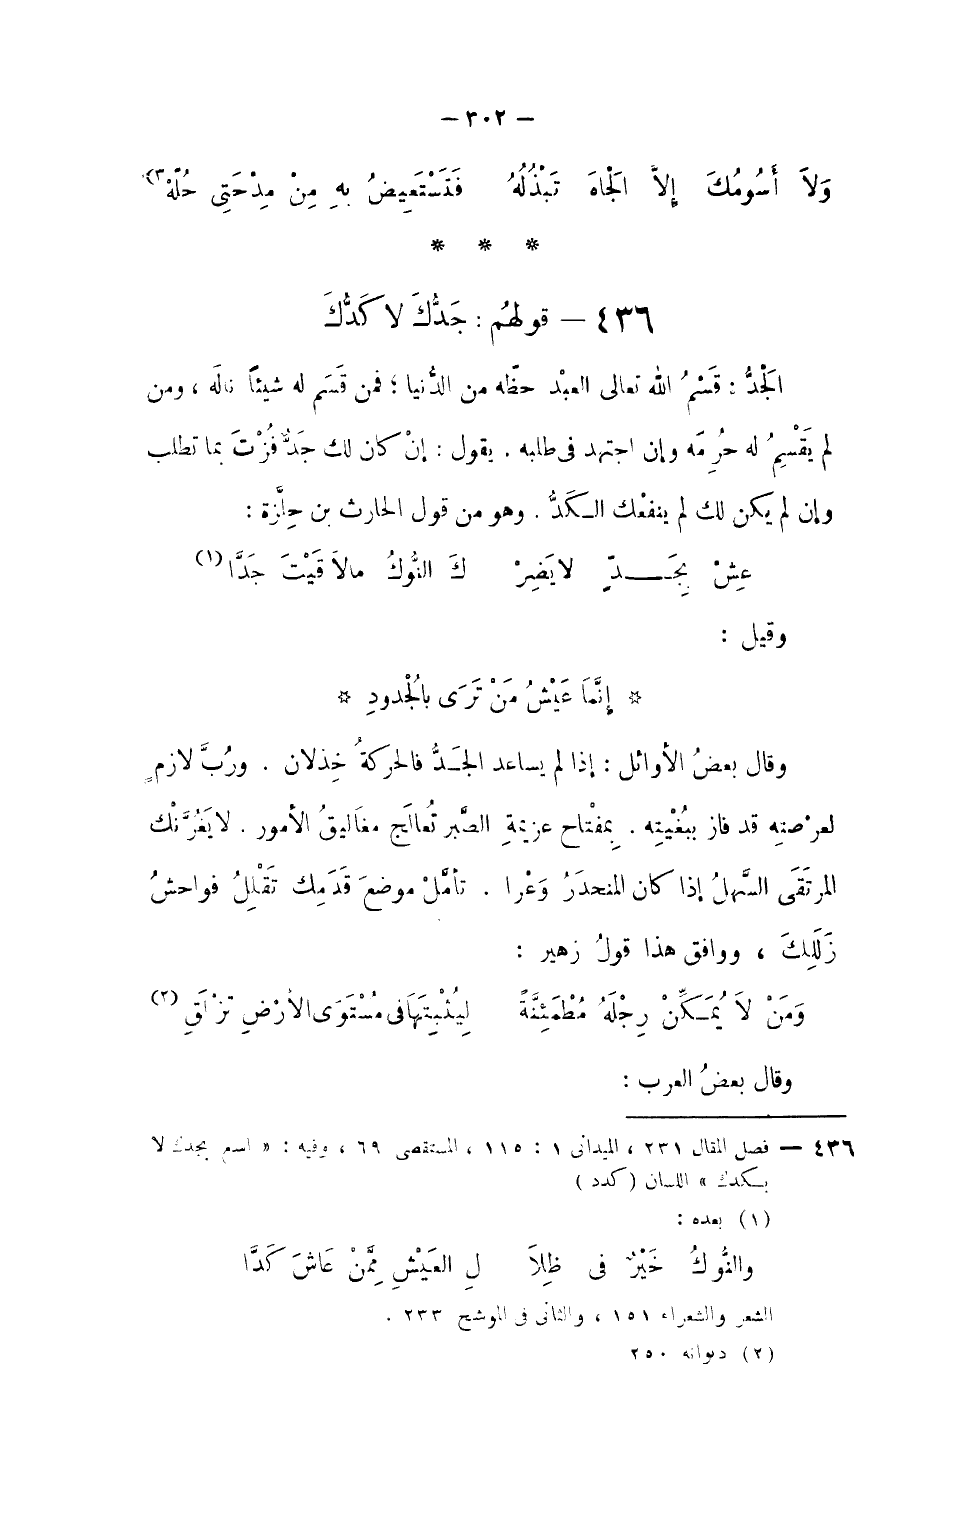 — ٣٠٢ —
وَلاَ أَسُومُكَ إِلاَّ الْجَاهَ تَبْذُلُهُ فَتَسْتَعِيضُ بِهِ مِنْ مِدْحَتِى حُلَّهْ(٣)
* * *
٤٣٦ — قولهُم : جَدُّكَ لا كَدُّكَ
الْجَدُّ : قَسْمُ الله تعالى العبْد حظّه من الدُّنيا ؛ فمن قَسَم له شيئاً نالَه ، ومن
لم يَقْسِمُ له حرُِمَه وإن اجتهد فى طلبه . يقول : إنْ كان لك جَدٌّ فُزْتَ بما تطلب
وإن لم يكن لك لم ينفعْك الكَدُّ . وهو من قول الحارث بن حِلَّزة :
عِشْ بِجَـــدٍّ لا يَضِرْ كَ النُّوكُ مالاَ قَيْتَ جَدَّا(١)
وقيل :
* إِنَّمَا عَيْشُ مَنْ تَرَى بالْجُدودِ *
وقال بعضُ الأوائل : إذا لم يساعد الجَدُّ فالحركةُ خِذلان . ورُبَّ لازمٍ
لعرْصتِه قد فاز ببُغْيتِه . بِمفْتاح عزيمةِ الصَّبر تُعالَج مغاَليقُ الأمور . لا يَغُرَّنك
المرتَقَى السَّهلُ إذا كان المنحدَرُ وَعْرا . تأمَّلْ موضعَ قَدَمِك تَقْلِلُ فواحشُ
زَلَلِكَ ، ووافق هذا قولُ زهير :
وَمَنْ لاَ يُمَكِّنْ رِجْلَهُ مُطْمَئِنَّةً لِيُثْبِتَهَا فى مُسْتَوَى الأرْضِ تَزْلَقِ (٢)
وقال بعضُ العرب :
٤٣٦ — فصل المقال ٢٣١ ، الميدانى ١ : ١١٥ ، المستقصى ٦٩ ، وفيه : « اسع بجدك لا
بكدك » اللسان ( كدد )
(١) بعده :
والنُّوكُ خَيْرٌ فى ظِلاَ لِ العَيْشِ مِمَّنْ عَاشَ كَدَّا
الشعر والشعراء ١٥١ ، والثانى فى الموشح ٢٣٣ .
(٢) ديوانه ٢٥٠